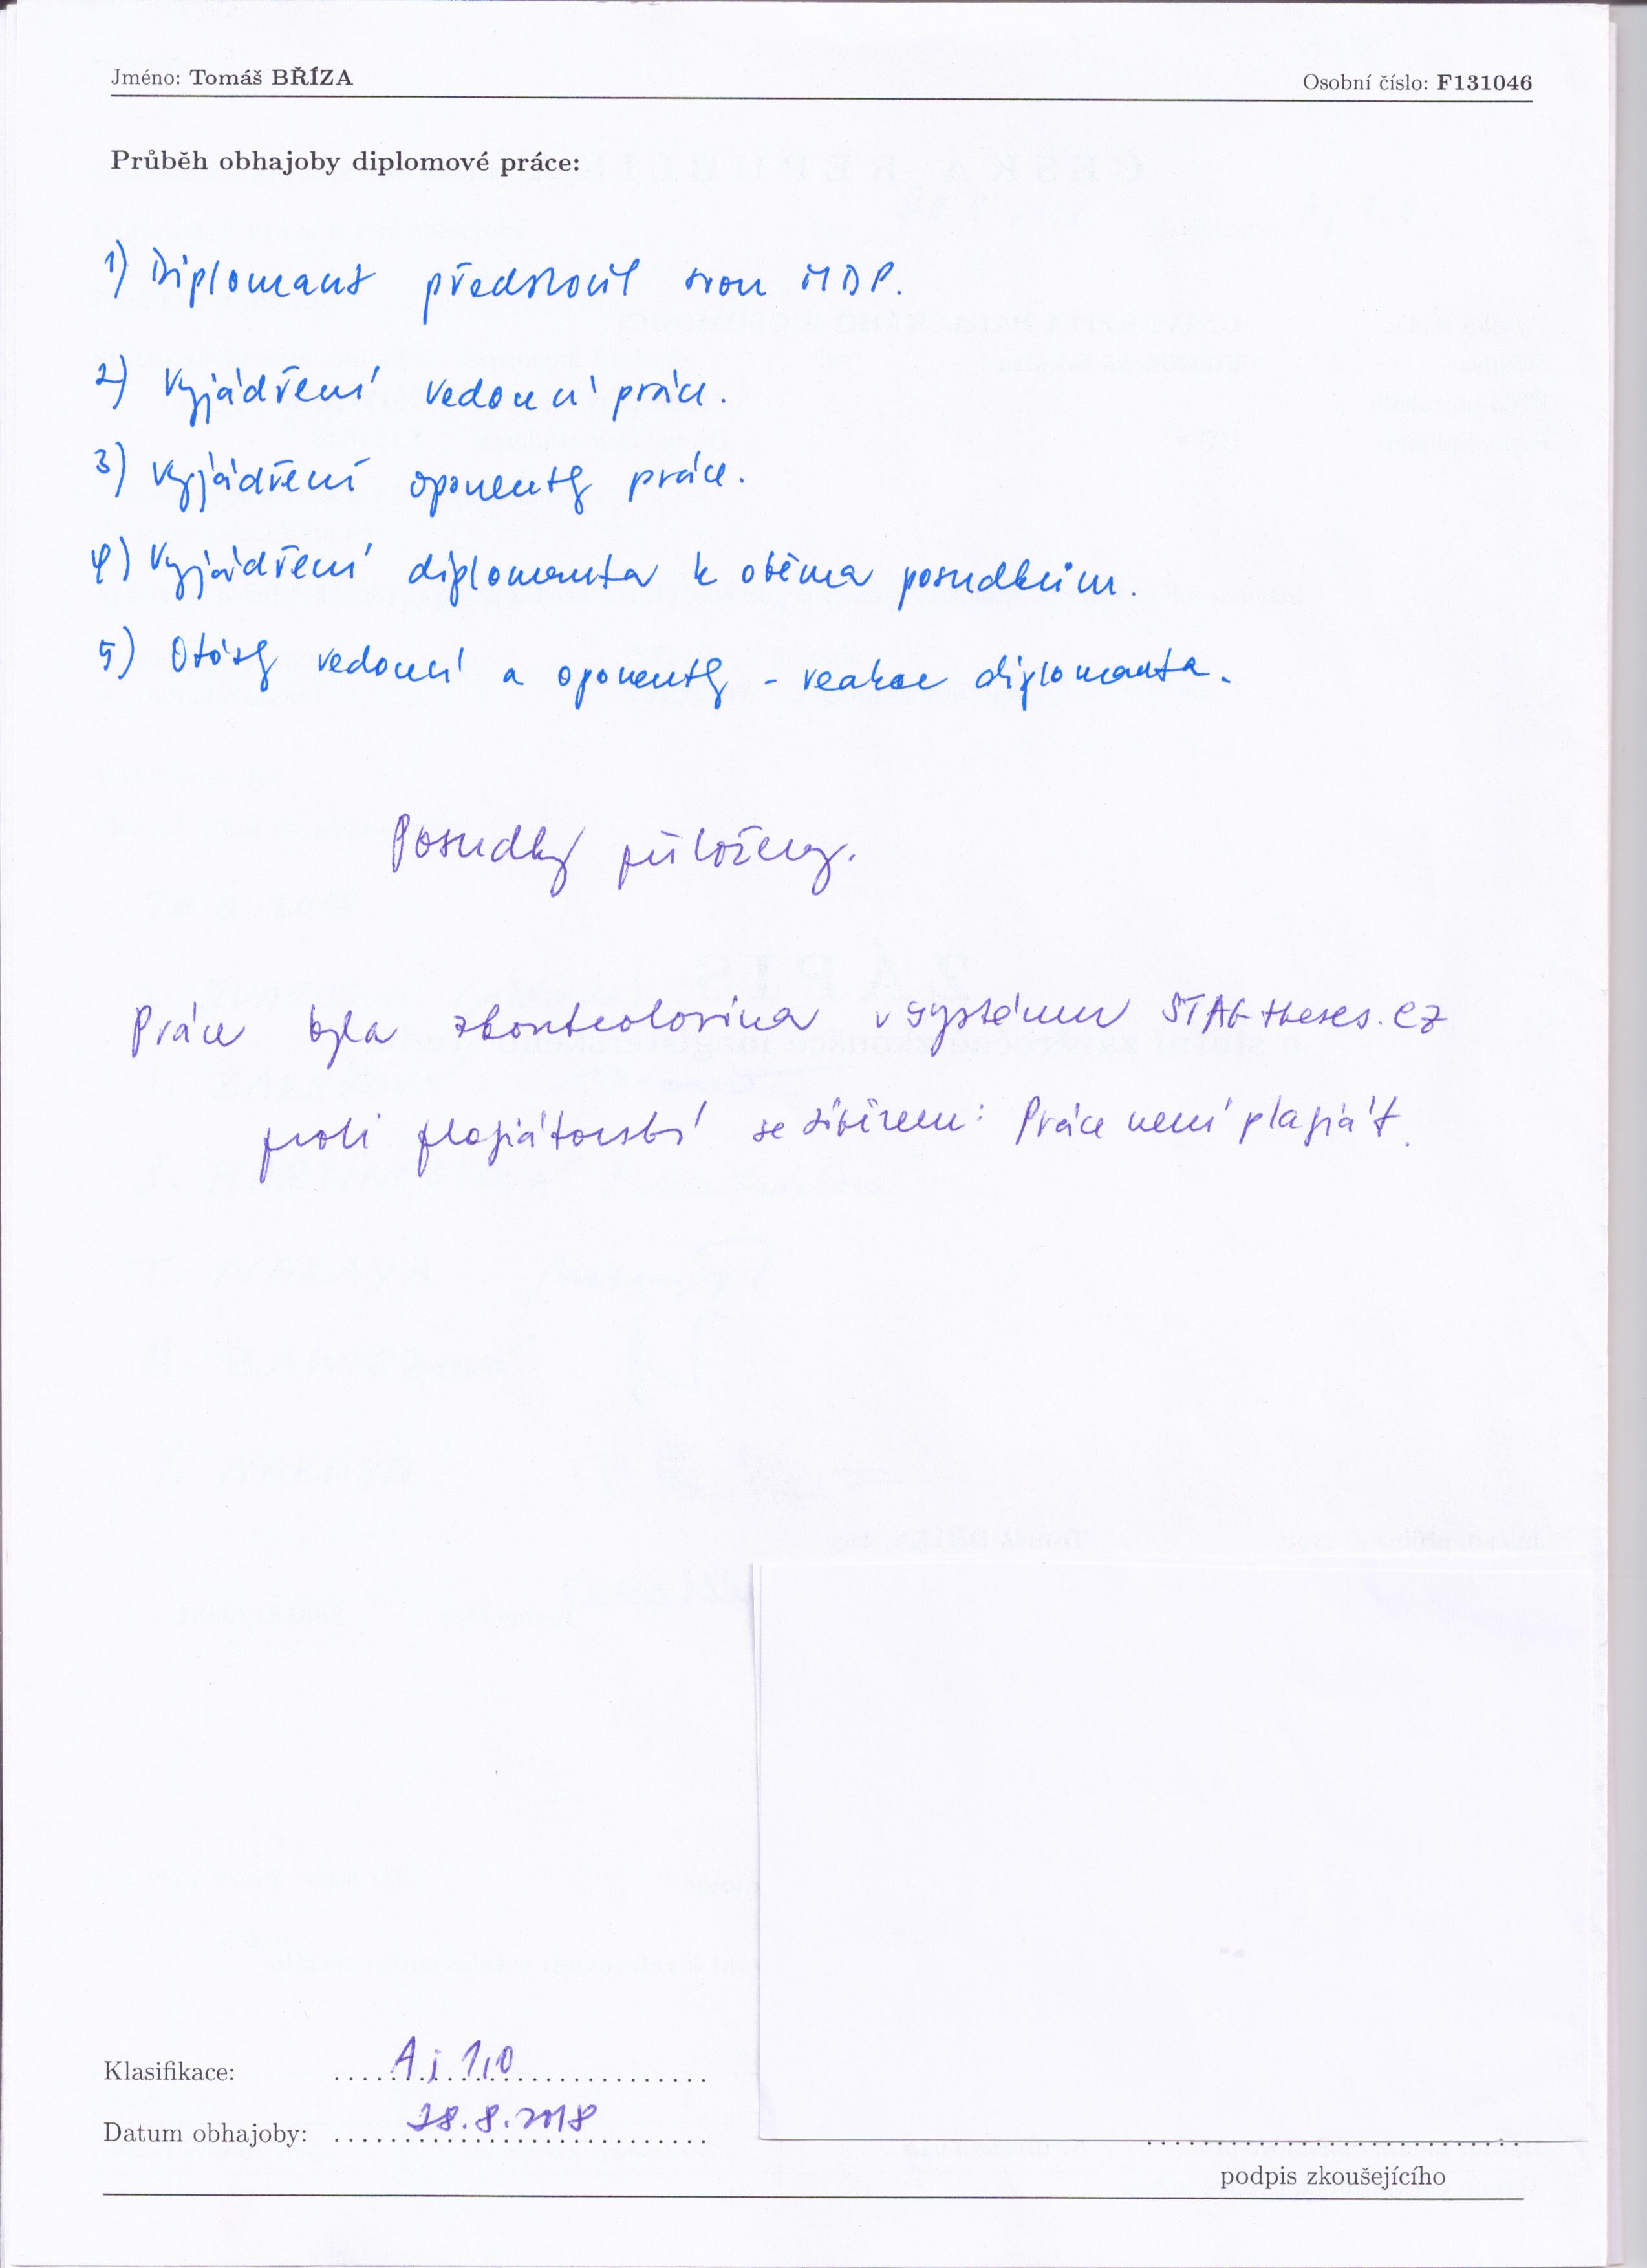 Jméno: Tomáš BŘÍZA
Osobní číslo: F131046
Průběh obhajoby diplomové práce:
1) Diplomant představil svou MDP.
2) Vyjádření vedoucí práce.
3) Vyjádření oponenty práce.
4) Vyjádření diplomanta k oběma posudkům.
5) Otázky vedoucí a oponenty - reakce diplomanta.
Posudky přiloženy.
Práce byla zkontrolována v systému STAG theses.cz
proti plagiátorství se závěrem: Práce není plagiát.
Klasifikace: A; 1,0
Datum obhajoby: 28.8.2018
podpis zkoušejícího